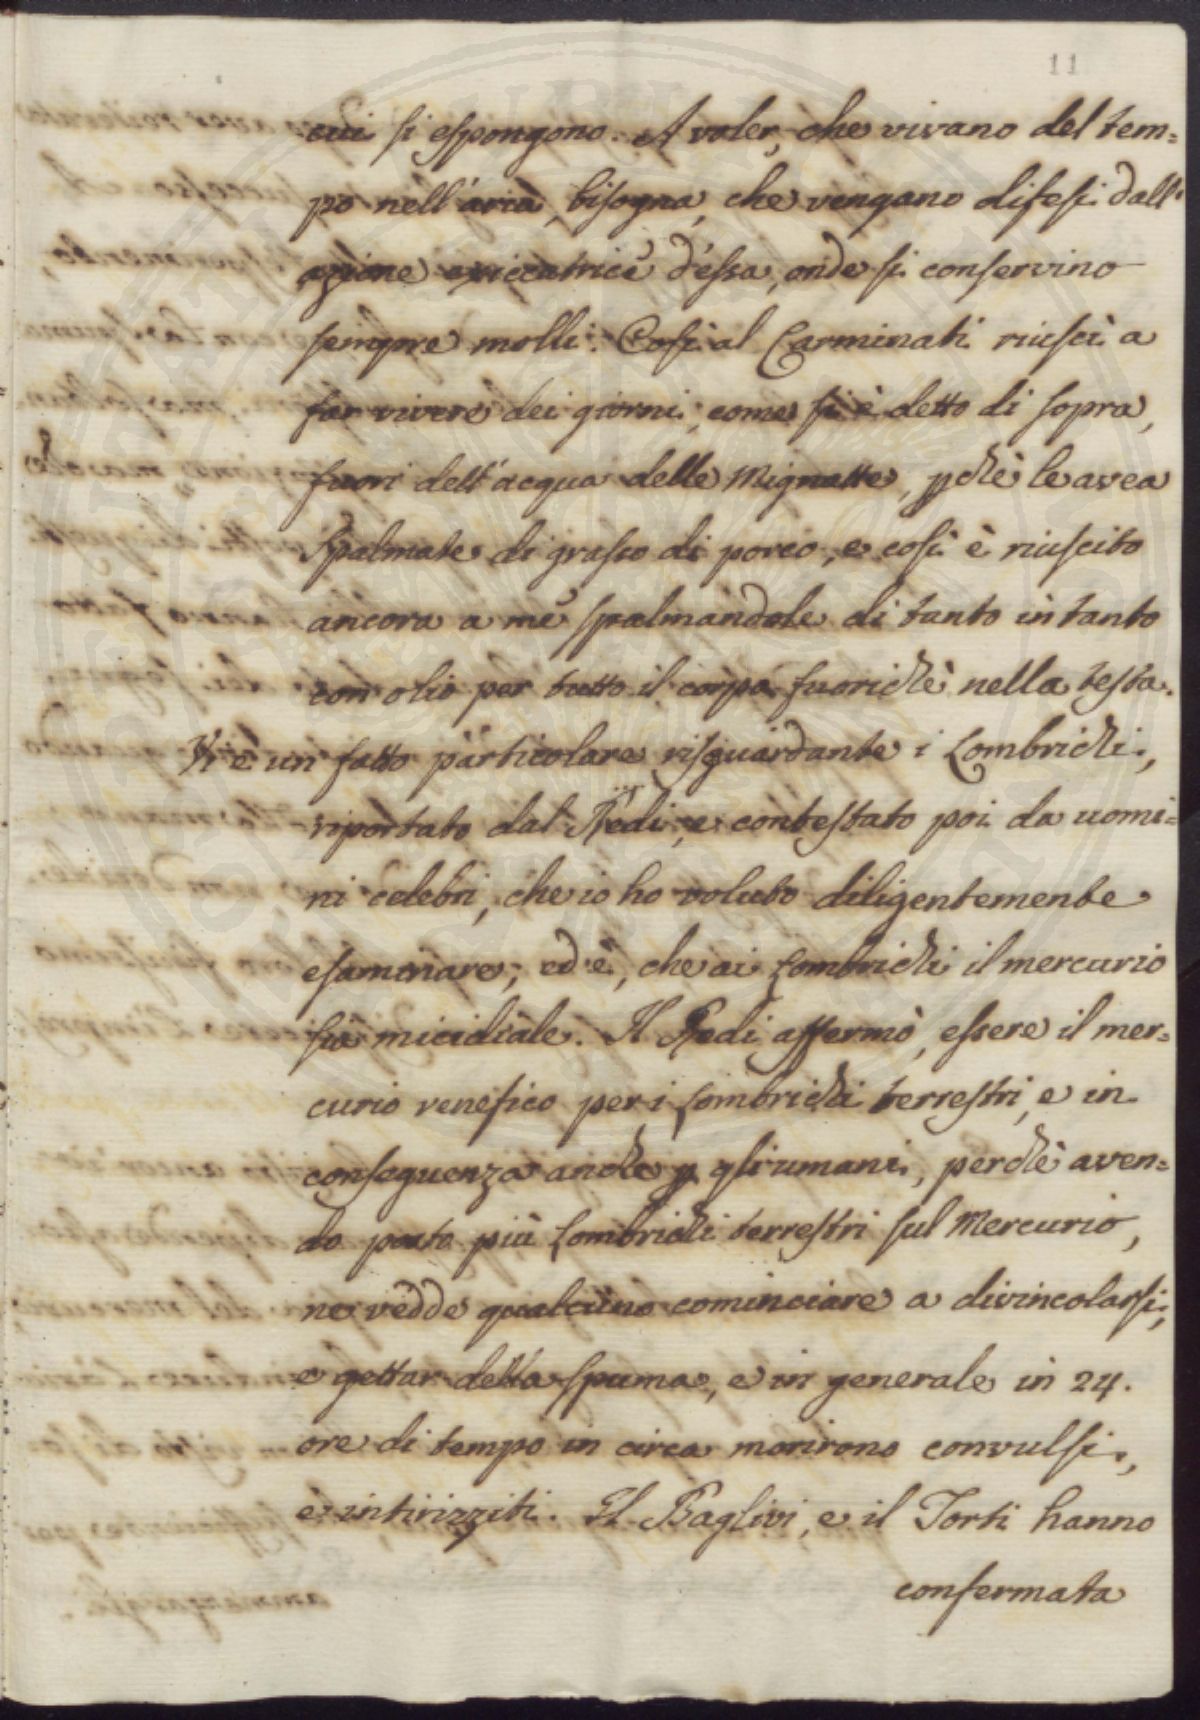 11
cui si espongono. A voler, che vivano del tem=
po nell'aria, bisogna, che vengano difesi dall'
azione essiccatrice d'essa, onde si conservino
sempre molli. Così al Carminati riuscì a
far vivere dei giorni, come si è detto di sopra,
fuori dell'acqua delle Mignatte, pchè le avea
spalmate di grasso di porco, e così è riuscito
ancora a me spalmandole di tanto in tanto
con olio per tutto il corpo, fuorichè nella testa.
Vi è un fatto particolare risguardante i Lombrichi,
riportato dal Redi, e contestato poi da uomi=
ni celebri, che io ho voluto diligentemente
esaminare; ed è, che ai Lombrichi il mercurio
sia micidiale. Il Redi affermò, essere il mer=
curio venefico per i Lombrichi terrestri, e in
conseguenza anche p gli umani, perchè aven=
do posto più Lombrichi terrestri sul Mercurio,
ne vedde qualcuno cominciare a divincolarsi,
e gettar della spuma, e in generale in 24.
ore di tempo in circa morirono convulsi,
e intirizziti. Il Baglivi, e il Torti hanno
confermata